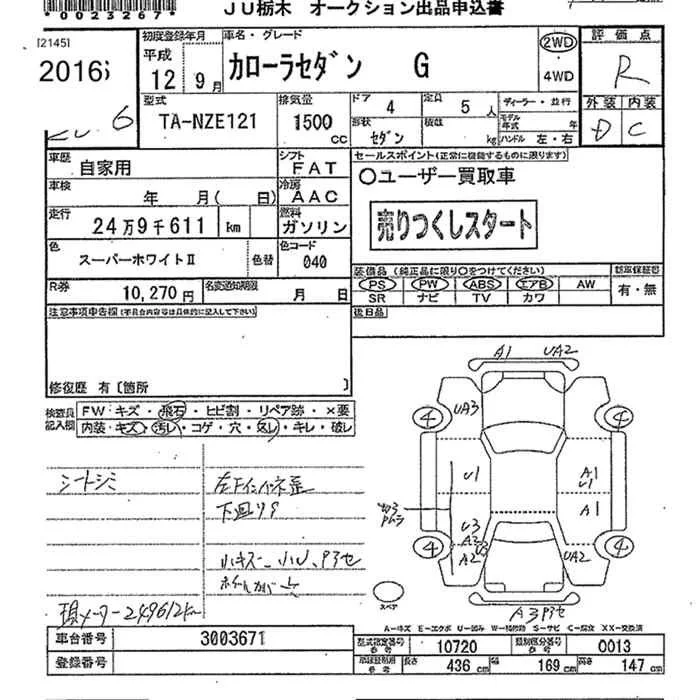 *0023267*
JU栃木 オークション出品申込書
[2145]
2016
6
初度登録年月
平成
12 9月
車名・グレード
カローラセダン G
2WD
4WD
評価点
R
外装 内装
D C
型式
TA-NZE121
排気量
1500cc
ドア 4
定員 5人
形状 セダン
積載 kg
ディーラー・並行
モデル年式 年
ハンドル 左・右
車歴 自家用
シフト FAT
車検 年 月( 日)
冷房 AAC
走行 24万9千611 km
燃料 ガソリン
色 スーパーホワイトⅡ
色替
色コード 040
R券 10,270円
名変通知期限 月 日
セールスポイント(正常に機能するものに限ります)
〇ユーザー買取車
売りつくしスタート
装備品(純正品に限り〇をつけてください)
PS PW ABS エアB AW
SR ナビ TV カワ
新車保証書
有・無
後日品
注意事項申告欄(不具合内容等は具体的に記入して下さい)
修復歴 有〔箇所 〕
検査員記入欄
FW:キズ・飛石・ヒビ割・リペア跡・×要
内装・キズ・汚レ・コゲ・穴・スレ・キレ・破レ
シートシミ
下廻りサ
現メーター249612km
A1 UA2
UA3
4 4
U1
A1
U1
A1
U3
A2
U3
A2
UA2
4 4
スペア
A-キズ E-エクボ U-凹み W-補修跡 S-サビ C-腐食 XX-交換済
車台番号 3003671
登録番号
型式指定番号 参考 10720
類別区分番号 参考 0013
参考 長さ 436cm 幅 169cm 高さ 147cm